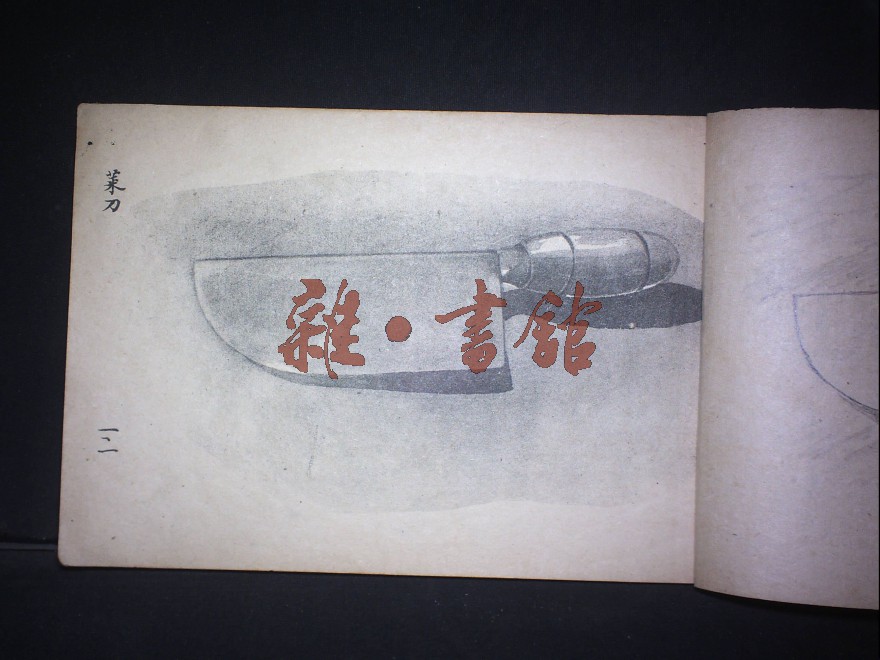 菜刀
一、一
雜·書館